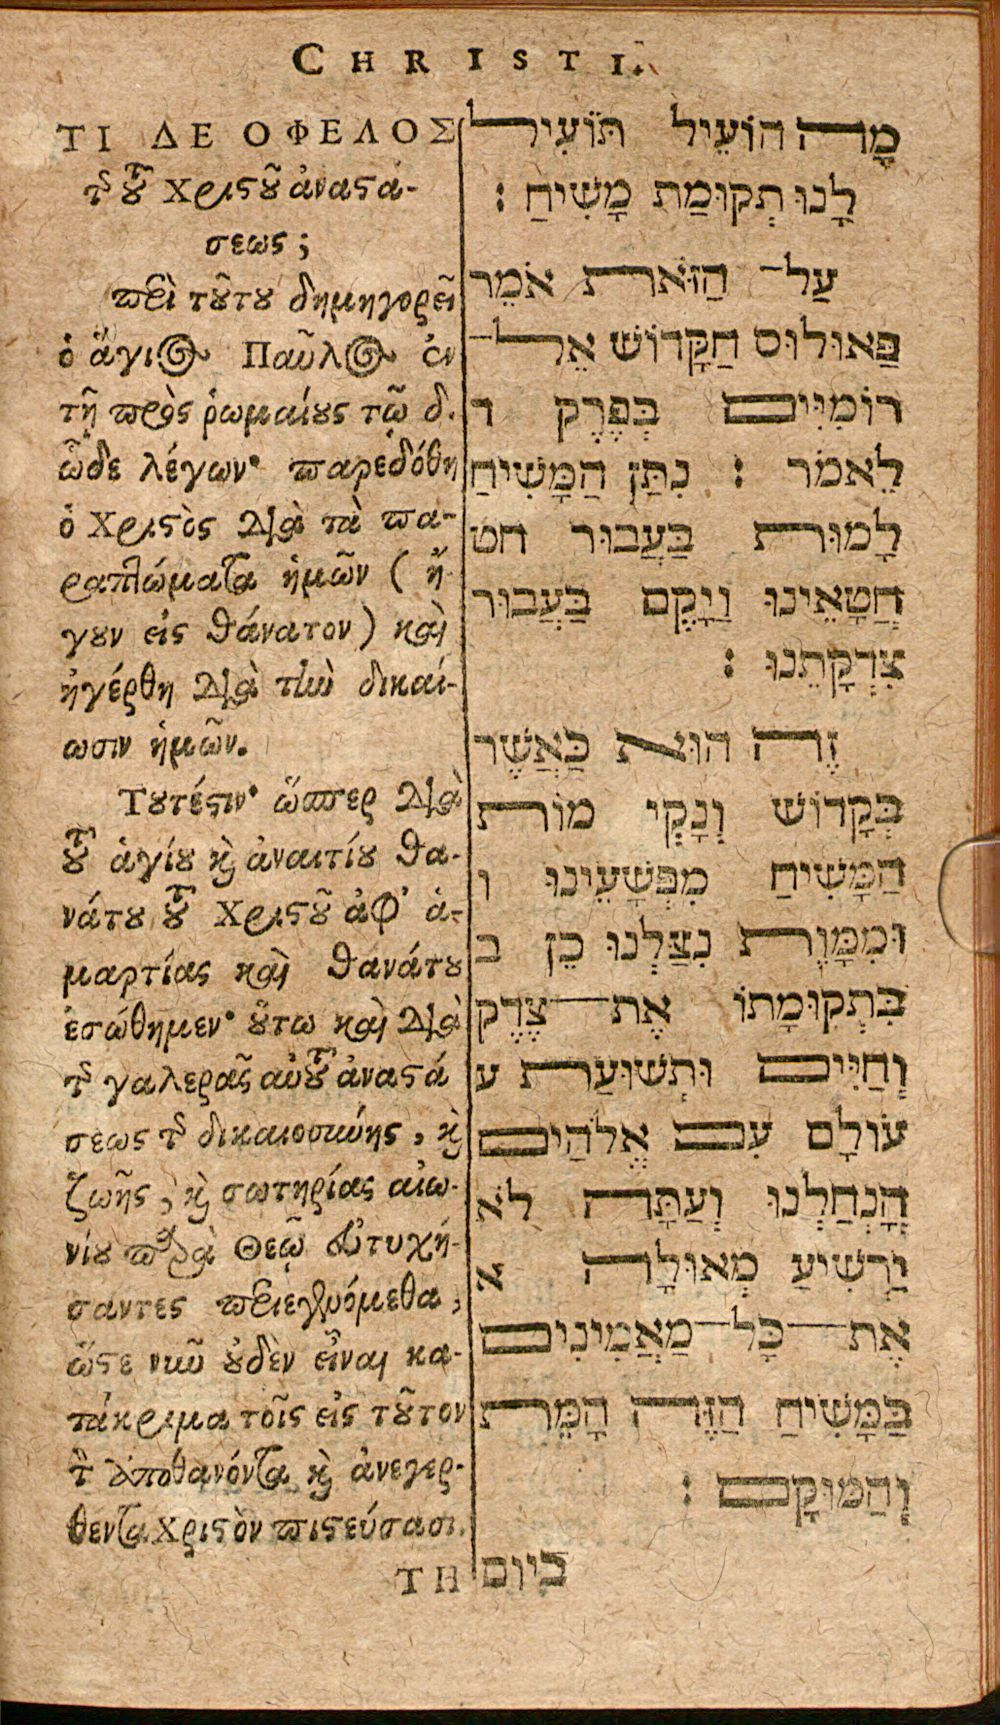 CHRISTI.
ΤΙ ΔΕ ΟΦΕΛΟΣ
τῆς τοῦ Χριστοῦ ἀναστά-
σεως;
περὶ τούτου δημηγορεῖ
ὁ ἅγιος Παῦλος ἐν
τῇ πρὸς ῥωμαίους τῷ δ.
ὧδε λέγων· παρεδόθη
ὁ Χριστὸς διὰ τὰ πα-
ραπτώματα ἡμῶν (ἤ-
γουν εἰς θάνατον) καὶ
ἠγέρθη διὰ τὴν δικαί-
ωσιν ἡμῶν.
Τουτέστιν· ὥσπερ διὰ
τοῦ ἁγίου καὶ ἀναιτίου θα-
νάτου τοῦ Χριστοῦ ἀφ' ἁ-
μαρτίας καὶ θανάτου
ἐσώθημεν· οὕτω καὶ διὰ
τῆς γαλερᾶς αὐτοῦ ἀναστά
σεως τῆς δικαιοσύνης, καὶ
ζωῆς, καὶ σωτηρίας αἰω-
νίου παρὰ Θεῷ εὐτυχή-
σαντες περιεγενόμεθα,
ὥστε νῦν οὐδὲν εἶναι κα-
τάκριμα τοῖς εἰς τοῦτον
τὸν ἀποθανόντα καὶ ἀνεγερ-
θεντα Χριστὸν πιστεύσασι.
ΤΗ
מָה הוֹעֵיל תּוֹעִיל
לָנוּ תְקוּמַת מָשִׁיחַ :
עַל־ הַזֹּאת אֹמֵר
פַּאוּלוּס הַקָּדוֹשׁ אֶל־
רוֹמִיִּים בְּפֶרֶק ד
לֵאמֹר : נִתַּן הַמָּשִׁיחַ
לָמוּת בַּעֲבוּר חט
חֲטָאֵינוּ וַיָּקָם בַּעֲבוּר
צִדְקָתֵנוּ :
זֶה הוּא כַּאֲשֶׁר
בְּקָדוֹשׁ וְנָקִי מוֹת
הַמָּשִׁיחַ מִפְּשָׁעֵינוּ ו
וּמִמָּוֶת נִצַּלְנוּ כֵן ב
בִּתְקוּמָתוֹ אֶת־צֶדֶק
וְחַיִּים וּתְשׁוּעַת ע
עוֹלָם עִם אֱלֹהִים
הָנְחַלְנוּ וְעַתָּה לֹא
יַרְשִׁיעַ מְאוּלָה א
אֶת־כָּל־מַאֲמִינִים
בַּמָּשִׁיחַ הַזֶּה הָמֵּת
וְהַמּוּקָם :
ביום